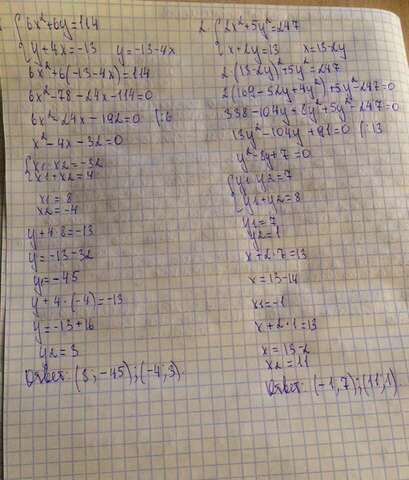 {6x²+6y=114
{y+4x=-13 y=-13-4x
6x²+6(-13-4x)=114
6x²-78-24x-114=0
6x²-24x-192=0 |:6
x²-4x-32=0
{x1·x2=-32
{x1+x2=4
x1=8
x2=-4
y+4·8=-13
y=-13-32
y1=-45
y+4·(-4)=-13
y=-13+16
y2=3
Ответ: (8;-45);(-4;3).
2. {2x²+5y²=247
{x+2y=13 x=13-2y
2(13-2y)²+5y²=247
2(169-52y+4y²)+5y²-247=0
338-104y+8y²+5y²-247=0
13y²-104y+91=0 |:13
y²-8y+7=0
{y1·y2=7
{y1+y2=8
y1=7
y2=1
x+2·7=13
x=13-14
x1=-1
x+2·1=13
x=13-2
x2=11
Ответ: (-1;7);(11;1).